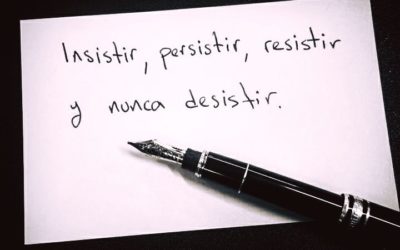 Insistir, persistir, resistir
y nunca desistir.